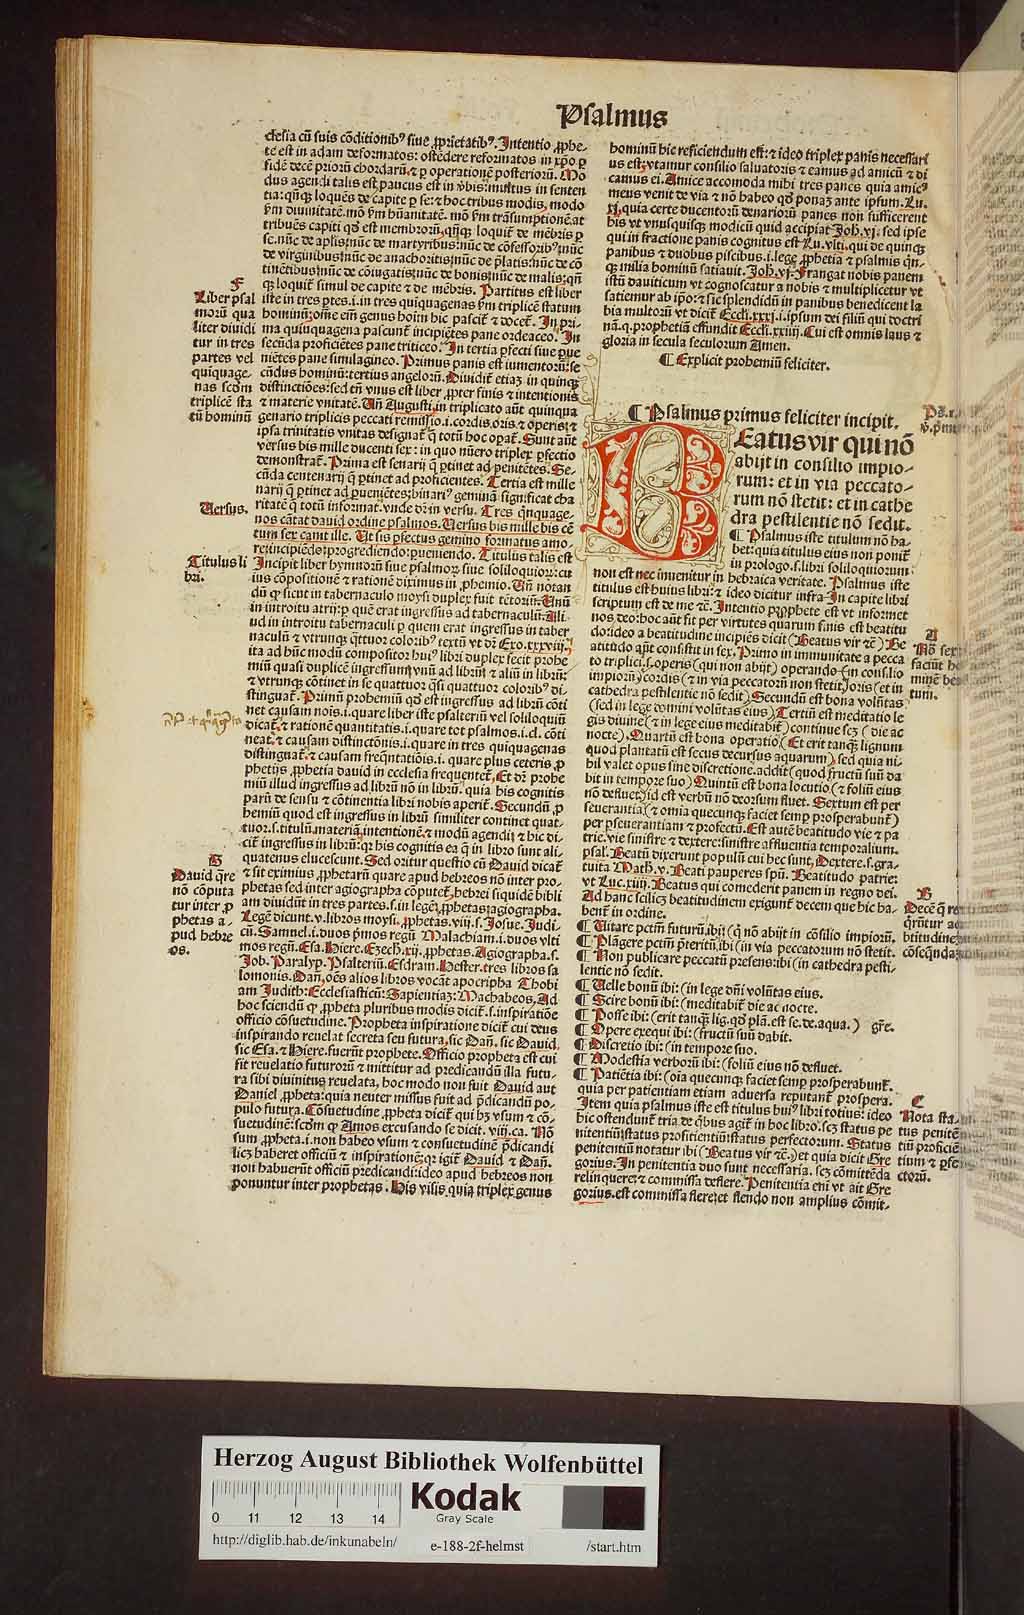 Psalmus
clesia cũ suis cõditionibꝰ siue ꝓprietatibꝰ. Intentio ꝓphe-
te est in adam deformatos: ostẽdere reformatos in xp̃o ꝑ
fidẽ decẽ priorũ chordarũ, ⁊ ꝑ operationẽ posteriorũ. Mo
dus agendi talis est, paucus est in ṽbis: multus in senten
tia: qñqꝫ loquẽs de capite ꝑ se: ⁊ hoc tribus modis, modo
ẜm diuinitatẽ. mõ ẜm hũanitatẽ. mõ ẜm trãsumptionẽ. at
tribuẽs capiti qđ est membrorũ, qñqꝫ loquit̃ de mẽbris ꝑ
se. nũc de apl̃is: nũc de martyribus: nũc de cõfessoribꝰ: nũc
de virginibus: nũc de anachoritis: nũc de p̃latis: nũc de cõ
tinẽtibus: nũc de cõiugatis: nũc de bonis: nũc de malis: qñ
qꝫ loquit̃ simul de capite ⁊ de mẽbris. Partitus est liber
iste in tres ꝑtes. i. in tres quiquagenas ẜm triplicẽ statum
hominũ: om̃e em̃ genus hoĩm hic pascit̃ ⁊ docet̃. In pri-
ma quiquagena pascunt̃ incipiẽtes pane ordeaceo. In
secũda proficiẽtes pane triticeo. In tertia ꝑfecti siue ꝑue
niẽtes pane similagineo. Primus panis est iumentorũ: se
cũdus hominũ: tertius angelorũ. Diuidit̃ etiaʒ in quinqꝫ
distinctiões: sed tñ vnus est liber ꝓpter finis ⁊ intentionis
⁊ materie vnitatẽ. Uñ Augusti. in triplicato aũt quinqua
genario triplicis peccati remissio. i. cordis. oris. ⁊ operis: ⁊
ipsa trinitatis vnitas designat̃ q̃ totũ hoc opat̃. Sunt aũt
versus bis mille ducenti sex: in quo nũero triplex ꝑfectio
demonstrat̃. Prima est senarij q̃ ꝑtinet ad penitẽtes. Se-
cũda centenarij q̃ ꝑtinet ad proficientes. Tertia est mille
narij q̃ ꝑtinet ad ꝑueniẽtes: binariꝰ geminã significat cha
ritatẽ q̃ totũ informat. vnde dõr in versu. Tres q̃nquage-
nos cãtat dauid ordine psalmos. Uersus bis mille bis cẽ
tum sex canit ille. Ut sis ꝑfectus gemino formatus amo-
re: incipiẽdo: progrediendo: ꝑueniendo. Titulus talis est
Incipit liber hymnorũ siue psalmoꝝ siue soliloquioꝝ: cu
ius cõpositionẽ ⁊ rationẽ diximus in ꝓhemio. Uñ notan
dũ ꝙ sicut in tabernaculo moysi duplex fuit tẽtoriũ: Unũ
in introitu atrij: ꝑ quẽ erat ingressus ad tabernaculũ. Ali-
ud in introitu tabernaculi ꝑ quem erat ingressus in taber
naculũ ⁊ vtrunqꝫ q̃ttuor coloribꝰ textũ vt dr̃ Exo. xxxviij.
ita ad hũc modũ compositor huiꝰ libri duplex fecit prohe
miũ quasi duplicẽ ingressum: vnũ ad librũ: ⁊ aliũ in librũ:
⁊ vtrunqꝫ cõtinet in se quattuor q̃si quattuor coloribꝰ di-
stinguat̃. Primũ prohemiũ qđ est ingressus ad librũ cõti
net causam nois. i. quare liber iste psalteriũ vel soliloquiũ
dicat̃. ⁊ rationẽ quantitatis. i. quare tot psalmos. i. cl. cõti
neat. ⁊ causam distinctõnis. i. quare in tres quiquagenas
distinguat̃. ⁊ causam freq̃ntatiõis. i. quare plus ceteris ꝓ
phetijs ꝓphetia dauid in ecclesia frequentet̃. Et dr̃ prohe
miũ illud ingressus ad librũ nõ in librũ. quia his cognitis
parũ de sensu ⁊ cõtinentia libri nobis aperit̃. Secundũ ꝓ
hemiũ quod est ingressus in librũ similiter continet quat-
tuor. s. titulũ. materiã. intentionẽ. ⁊ modũ agendi: ⁊ hic di-
cit̃ ingressus in librũ: qꝫ his cognitis ea q̃ in libro sunt ali-
quatenus elucescunt. Sed oritur questio cũ Dauid dicat̃
⁊ sit eximius ꝓphetarũ quare apud hebreos nõ inter pro-
phetas sed inter agiographa cõputet̃. hebrei siquidẽ bibli
am diuidũt in tres partes. s. in legẽ, ꝓphetas: agiographa.
Legẽ dicunt. v. libros moysi. ꝓphetas. viij. s. Josue. Judi-
cũ. Samuel. i. duos p̃mos regũ Malachiam. i. duos vlti
mos regũ. Esa. Hiere. Ezech. xij. ꝓphetas. Agiographa. s.
Job. Paralyp. Psalteriũ. Esdram. Hester. tres libros sa
lomonis. Dañ. oẽs alios libros vocãt apocripha Thobi
am Judith: Ecclesiasticũ: Sapientiaʒ: Machabeos. Ad
hoc sciendũ ꝙ ꝓpheta pluribus modis dicit̃. s. inspiratiõe
officio cõsuetudine. Propheta inspiratione dicit̃ cui deus
inspirando reuelat secreta seu futura. sic Dañ. sic Dauid.
sic Esa. ⁊ Hiere. fuerũt prophete. Officio propheta est cui
fit reuelatio futurorũ ⁊ mittitur ad predicandũ illa futu-
ra sibi diuinitus reuelata, hoc modo non fuit Dauid aut
Daniel ꝓpheta: quia neuter missus fuit ad p̃dicandũ po-
pulo futura. Cõsuetudine ꝓpheta dicit̃ qui hʒ vsum ⁊ cõ-
suetudinẽ: scdm ꝙ Amos excusando se dicit. viij. ca. Nõ
sum ꝓpheta. i. non habeo vsum ⁊ consuetudinẽ p̃dicandi
licʒ haberet officiũ ⁊ inspirationẽ: qꝫ igit̃ Dauid ⁊ Dañ.
non habuerũt officiũ predicandi: ideo apud hebreos non
ponuntur inter prophetas. His visis, quia triplex genus
F
Liber psal
morũ qua
liter diuidi
tur in tres
partes vel
quiquage-
nas scdm
triplicẽ sta
tũ hominũ
Uersus.
Titulus li
bri.
G
Dauid q̃re
nõ cõputa
tur inter ꝓ
phetas a-
pud hebre
os.
hominũ hic reficiendum est: ⁊ ideo triplex panis necessari
us est: vtamur consilio saluatoris ⁊ eamus ad amicũ ⁊ di
camus ei. Amice accomoda mihi tres panes quia amicꝰ
meus venit de via ⁊ nõ habeo qđ ponaʒ ante ipsum. Lu.
xj. quia certe ducentorũ denariorũ panes non sufficerent
his vt vnusquisqꝫ modicũ quid accipiat Joh. vj. sed ipse
qui in fractione panis cognitus est Lu. vlti. qui de quinqꝫ
panibus ⁊ duobus piscibus. i. lege ꝓphetia ⁊ psalmis q̃n-
qꝫ milia hominũ satiauit. Joh. vj. Frangat nobis panem
istũ dauiticum vt cognoscatur a nobis ⁊ multiplicetur vt
satiemur ab ip̃o: ⁊ sic splendidũ in panibus benedicent la
bia multorũ vt dicit̃ Eccli. xxxj. i. ipsum dei filiũ qui doctri
nã. q. prophetiã effundit Eccli. xxiiij. Cui est omnis laus ⁊
gloria in secula seculorum Amen.
¶ Explicit prohemiũ feliciter.
¶ Psalmus primus feliciter incipit.
Beatus vir qui nõ
abijt in consilio impio-
rum: et in via peccato-
rum nõ stetit: et in cathe
dra pestilentie nõ sedit.
¶ Psalmus iste titulum nõ ha-
bet: quia titulus eius non ponit̃
in prologo. s. libri soliloquiorum:
non est nec inuenitur in hebraica veritate. Psalmus iste
titulus est huius libri: ⁊ ideo dicitur infra. In capite libri
scriptum est de me ⁊c̃. Intentio ꝓpphete est vt informet
nos deo: hoc aũt fit per virtutes quarum finis est beatitu
do: ideo a beatitudine incipiẽs dicit (Beatus vir ⁊c̃) Be
atitudo aũt consistit in sex. Primo in immunitate a pecca
to triplici. s. operis (qui non abijt) operando (in consilio
impiorũ) cordis (⁊ in via peccatorũ non stetit) oris (et in
cathedra pestilentie nõ sedit) Secundũ est bona volũtas
(sed in lege domini volũtas eius) Tertiũ est meditatio le
gis diuine (⁊ in lege eius meditabit̃) continue scʒ (die ac
nocte). Quartũ est bona operatio (Et erit tanqꝫ lignum
quod plantatũ est secus decursus aquarum) sed quia ni-
hil valet opus sine discretione. addit (quod fructũ suũ da
bit in tempore suo) Quintũ est bona locutio (⁊ foliũ eius
nõ defluet) id est verbũ nõ deorsum fluet. Sextum est per
seuerantia (⁊ omia quecunqꝫ faciet semꝑ prosperabunt̃)
per ꝑseuerantiam ⁊ profectũ. Est autẽ beatitudo vie ⁊ pa
trie. vie sinistre ⁊ dextere: sinistre affluentia temporalium.
psal. Beatũ dixerunt populũ cui hec sunt, Dextere. s. gra-
tuita Math. v. Beati pauperes spũ. Beatitudo patrie:
vt Luc. xiiij. Beatus qui comederit panem in regno dei.
Ad hanc scilicʒ beatitudinem exigunt̃ decem que hic ha-
bent̃ in ordine.
¶ Uitare pctm̃ futurũ. ibi: (q̃ nõ abijt in cõsilio impiorũ.
¶ Plãgere pctm̃ p̃teritũ. ibi (in via peccatorum nõ stetit.
¶ Non publicare peccatũ presens: ibi (in cathedra pesti-
lentie nõ sedit.
¶ Uelle bonũ ibi: (in lege dñi volũtas eius.
¶ Scire bonũ ibi: (meditabit̃ die ac nocte.
¶ Posse ibi: (erit tanqꝫ lig. qđ plã. est se. de. aqua.) gr̃e.
¶ Opere exequi ibi: (fructũ suũ dabit.
¶ Discretio ibi: (in tempore suo.
¶ Modestia verborũ ibi: (foliũ eius nõ defluet.
¶ Patiẽtia ibi: (oĩa quecunqꝫ faciet semꝑ prosperabunt̃.
quia per patientiam etiam aduersa reputant̃ prospera.
Item quia psalmus iste est titulus huiꝰ libri totius: ideo
hic ostendunt̃ tria de q̃bus agit̃ in hoc libro. scʒ status pe
nitentiũ: status proficientiũ: status perfectorum. Status
penitentiũ notatur ibi (Beatus vir ⁊c̃.) et quia dicit Gre
gorius. In penitentia duo sunt necessaria. scʒ cõmittẽda
relinquere: ⁊ commissa deflere. Penitentia em̃ vt ait Gre
gorius. est commissa flere: et flendo non amplius cõmit-
A
Nõ sex
faciũt
tum.
B
Decẽ q̃
C
Nota sta-
tus penitẽ
tiũ proficiẽ
tium ⁊ ꝑfe
ctorũ.
Herzog August Bibliothek Wolfenbüttel
0 11 12 13 14
Kodak
Gray Scale
http://diglib.hab.de/inkunabeln/ e-188-2f-helmst /start.htm